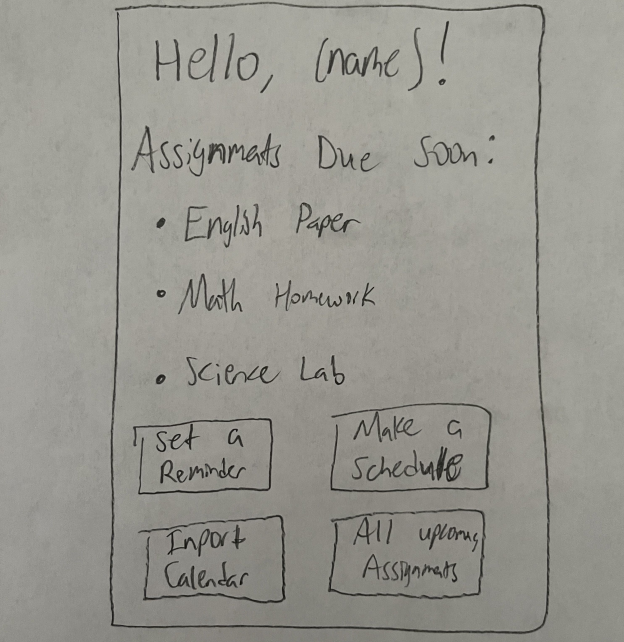 Hello, (name)!
Assignments Due Soon:
• English Paper
• Math Homework
• Science Lab
Set a
Reminder
Make a
Schedule
Import
Calendar
All upcoming
Assignments